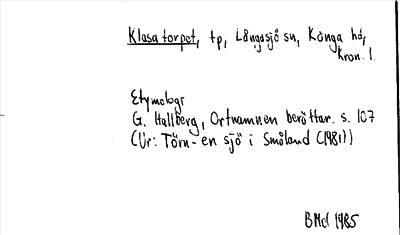 Klasatorpet, tp, Långasjö sn, Konga hd,
Kron. l.
Etymologi
G. Hallberg, Ortnamnen berättar. s. 107
(Ur: Törn - en sjö i Småland (1981))
BMcl 1985